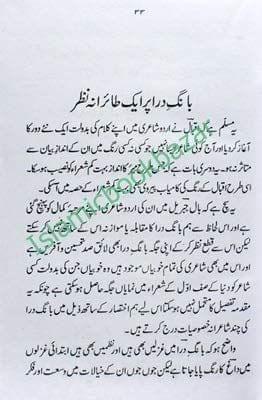 ۳۳
بانگِ درا پر ایک طائرانہ نظر
یہ مسلم ہے کہ اقبال نے اردو شاعری میں اپنے کلام کی بدولت ایک نئے دور کا
آغاز کر دیا اور آج کوئی شاعر ایسا نہیں جو کسی نہ کسی رنگ میں ان کے انداز بیان سے
متاثر نہ ہو۔ یہ دوسری بات ہے کہ جس طرح غالب کا انداز بہت کم شعراء کو نصیب ہو سکا۔
اسی طرح اقبال کے رنگ کی کامیاب پیروی بھی کم شعراء کے حصہ میں آ سکی۔
یہ سچ ہے کہ بال جبریل میں ان کی اردو شاعری اپنے مرتبہ کمال کو پہنچ گئی
اور اس لحاظ سے ہم بانگ درا کا مقابلہ یا موازنہ اس کے ساتھ نہیں کر سکتے
لیکن اس سے قطع نظر کر کے اپنی جگہ بانگ درا بھی لائق صد تحسین و آفرین ہے
اور اس میں بھی شاعری کی تمام خوبیاں موجود ہیں وہ خوبیاں جن کی بدولت کسی
شاعر کو دنیا کے صف اوّل کے شعراء میں نمایاں جگہ حاصل ہو سکتی ہے چونکہ یہ
مقدمہ تفصیل کا متحمل نہیں ہو سکتا اس لیے ہم اختصار کے ساتھ ذیل میں بانگ درا
کی چند شاعرانہ خصوصیات درج کرتے ہیں۔
واضح ہو کہ بانگ درا میں غزلیں بھی ہیں اور نظمیں بھی ہیں ابتدائی غزلوں
میں داغ کا رنگ پایا جاتا ہے لیکن جوں جوں ان کے خیالات میں وسعت اور فکر
Islamicbookbazar